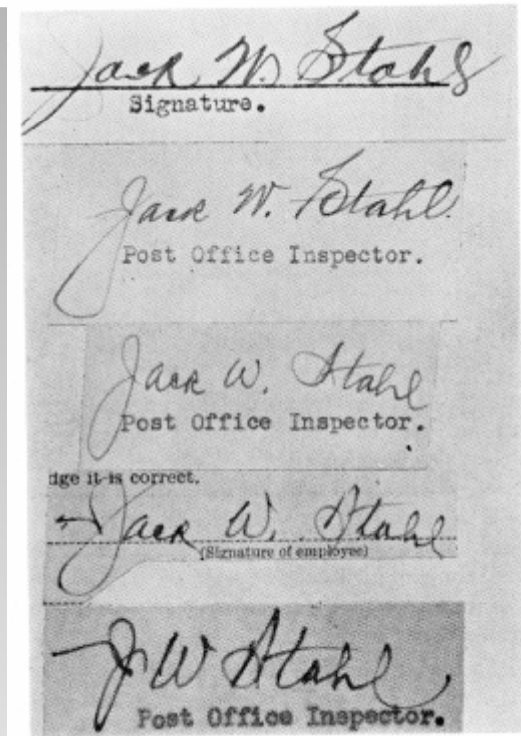 Jack W. Stahl
Signature.
Jack W. Stahl.
Post Office Inspector.
Jack W. Stahl
Post Office Inspector.
dge it is correct.
Jack W. Stahl
(Signature of employee)
J. W. Stahl
Post Office Inspector.